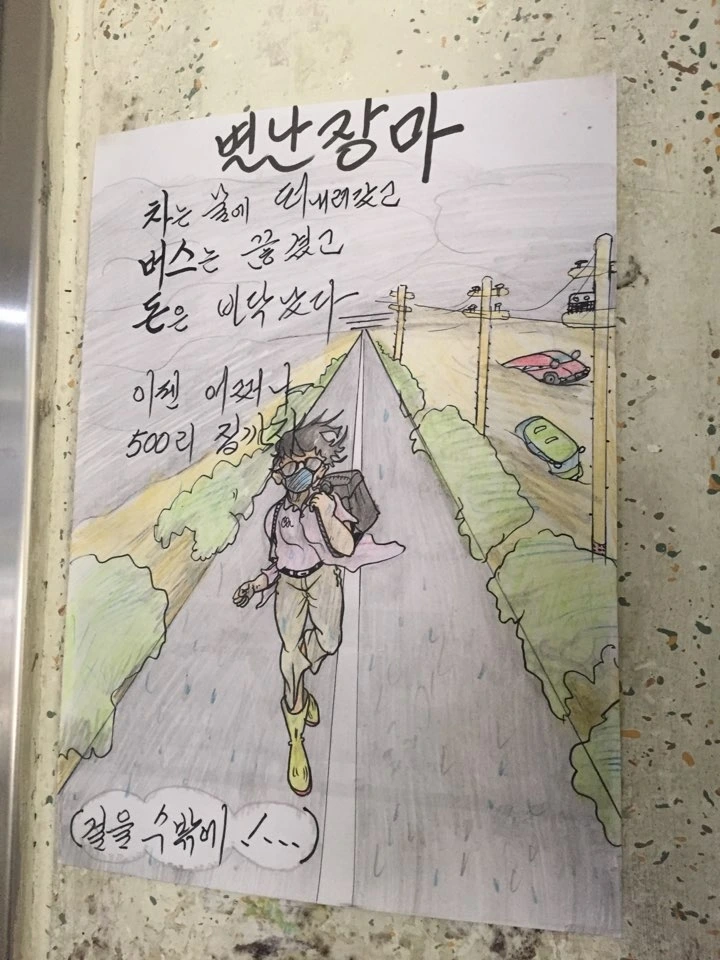 별난 장마
차는 물에 떠내려갔고
버스는 끊겼고
돈은 바닥났다
이젠 어쩌나
500리 집까지
(걸을 수밖에!...)